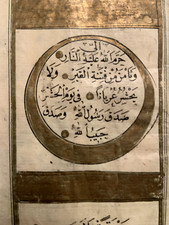 الى
حرم الله عليه النار
ويامن من فتنة القبر ولا
يحشر عريانا في يوم الحشر
صدق رسول الله وصدق
حبيب الله